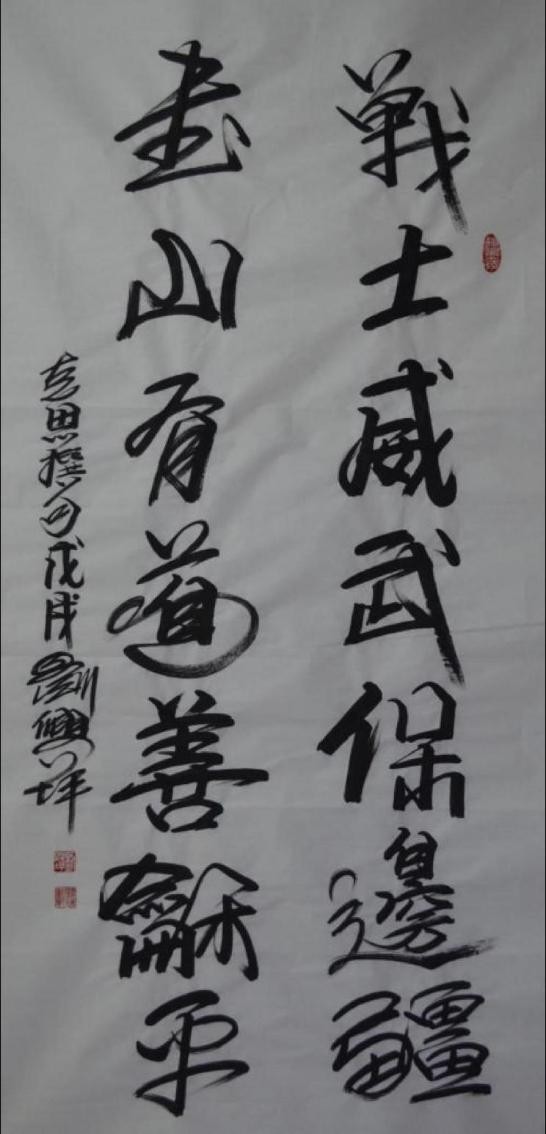 戰士威武保邊疆
書山有道善龢平
思撰句戊戌劉興